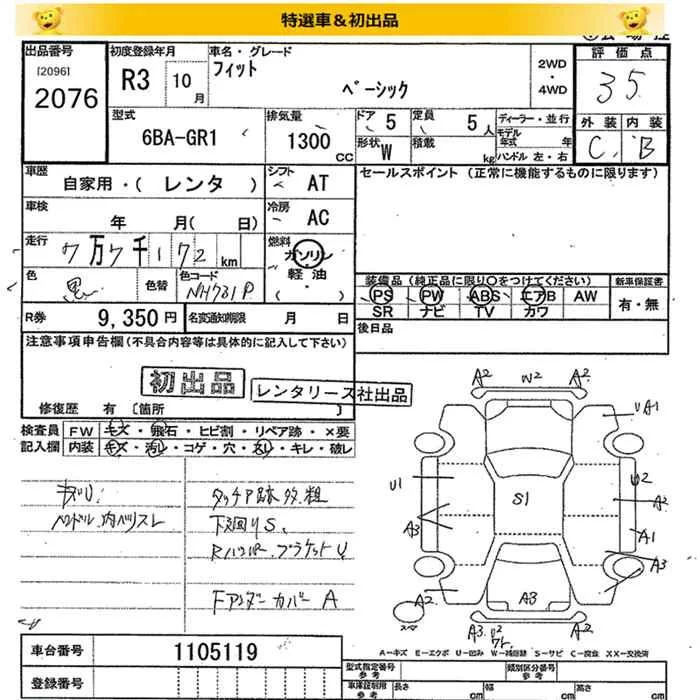 特選車＆初出品
出品番号
[2096]
2076
初度登録年月
R3 10月
車名・グレード
フィット
ベーシック
2WD
・
4WD
評価点
3.5
外装 内装
C B
型式
6BA-GR1
排気量
1300 CC
ドア 5
定員 5人
形状 W
積載 kg
ディーラー・並行
モデル
年式 年
ハンドル 左・右
車歴
自家用・( レンタ )
シフト AT
セールスポイント (正常に機能するものに限ります)
車検
年 月( 日)
冷房 AC
走行
7万7千172km
燃料
ガソリン
軽・油
( )
色
黒
色替
色コード
NH731P
装備品 (純正品に限り○をつけてください)
PS PW ABS エアB AW
SR ナビ TV カワ
新車保証書
有・無
R券 9,350円
名変通知期限 月 日
後日品
注意事項申告欄(不具合内容等は具体的に記入して下さい)
初出品
レンタリース社出品
修復歴 有 [箇所 ]
検査員
記入欄
FW キズ・飛石・ヒビ割・リペア跡・×要
内装 キズ・汚レ・コゲ・穴・スレ・キレ・破レ
タッチア跡多、粗
ハンドル、内ベリスレ
下廻りS、
Rバンパーブラケット U
Fアンダーカバー A
A2 W2 A2
UA1
U1
U2
S1
A2
A3
A1
A3
A2
A3
A3 U2 ワレ A2
スペア
A－キズ E－エクボ U－凹み W－補修跡 S－サビ C－腐食 XX－交換済
車台番号 1105119
登録番号
型式指定番号
参考
類別区分番号
参考
車庫証明用
参考
長さ cm
幅 cm
高さ cm